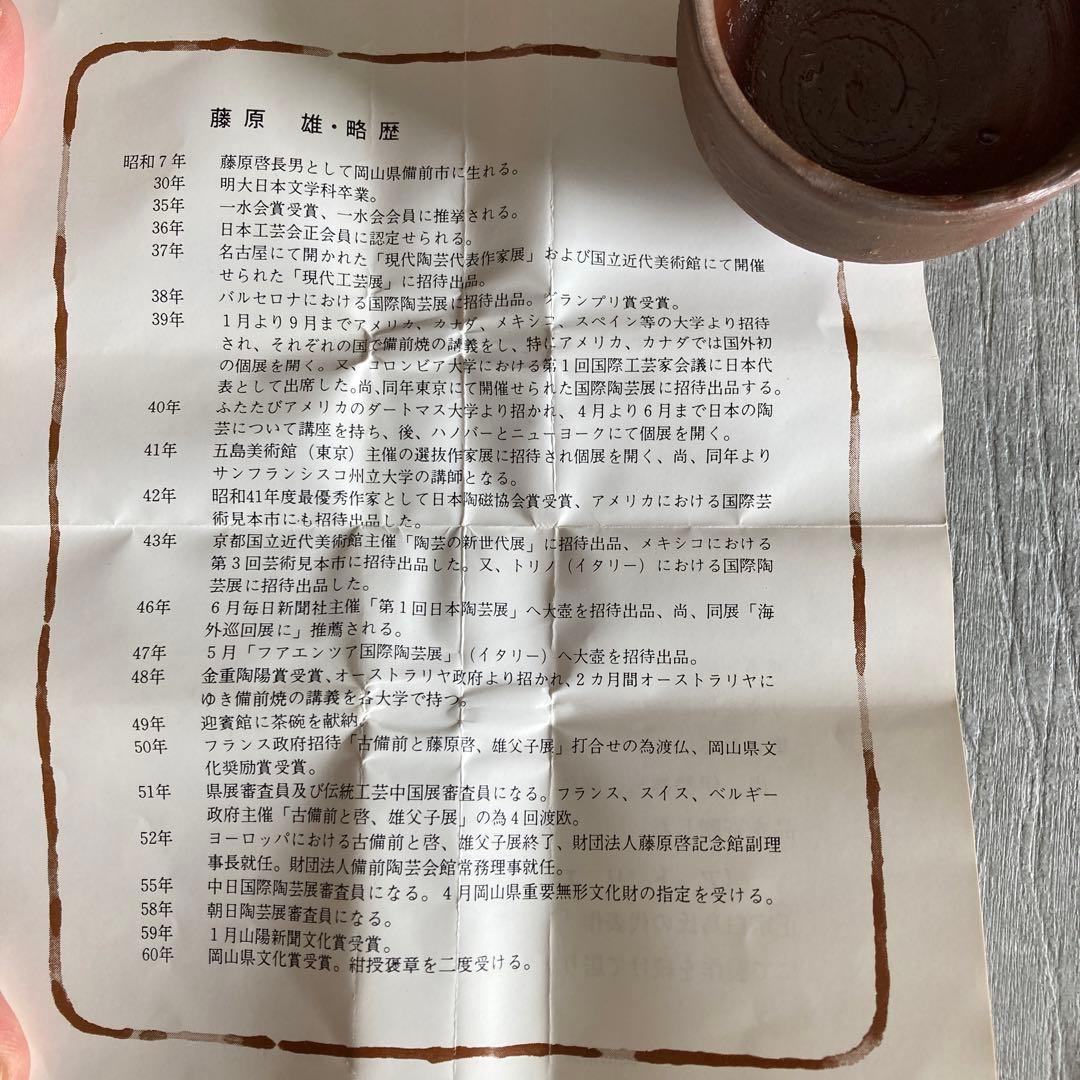 藤原 雄・略歴
昭和7年 藤原啓長男として岡山県備前市に生れる。
30年 明大日本文学科卒業。
35年 一水会賞受賞、一水会会員に推挙される。
36年 日本工芸会正会員に認定せられる。
37年 名古屋にて開かれた「現代陶芸代表作家展」および国立近代美術館にて開催
せられた「現代工芸展」に招待出品。
38年 バルセロナにおける国際陶芸展に招待出品。グランプリ賞受賞。
39年 1月より9月までアメリカ、カナダ、メキシコ、スペイン等の大学より招待
され、それぞれの国で備前焼の講義をし、特にアメリカ、カナダでは国外初
の個展を開く。又、コロンビア大学における第1回国際工芸家会議に日本代
表として出席した。尚、同年東京にて開催せられた国際陶芸展に招待出品する。
40年 ふたたびアメリカのダートマス大学より招かれ、4月より6月まで日本の陶
芸について講座を持ち、後、ハノバーとニューヨークにて個展を開く。
41年 五島美術館（東京）主催の選抜作家展に招待され個展を開く、尚、同年より
サンフランシスコ州立大学の講師となる。
42年 昭和41年度最優秀作家として日本陶磁協会賞受賞、アメリカにおける国際芸
術見本市にも招待出品した。
43年 京都国立近代美術館主催「陶芸の新世代展」に招待出品、メキシコにおける
第3回芸術見本市に招待出品した。又、トリノ（イタリー）における国際陶
芸展に招待出品した。
46年 6月毎日新聞社主催「第1回日本陶芸展」へ大壺を招待出品、尚、同展「海
外巡回展に」推薦される。
47年 5月「フアエンツア国際陶芸展」（イタリー）へ大壺を招待出品。
48年 金重陶陽賞受賞、オーストラリヤ政府より招かれ、2カ月間オーストラリヤに
ゆき備前焼の講義を各大学で持つ。
49年 迎賓館に茶碗を献納。
50年 フランス政府招待「古備前と藤原啓、雄父子展」打合せの為渡仏、岡山県文
化奨励賞受賞。
51年 県展審査員及び伝統工芸中国展審査員になる。フランス、スイス、ベルギー
政府主催「古備前と啓、雄父子展」の為4回渡欧。
52年 ヨーロッパにおける古備前と啓、雄父子展終了、財団法人藤原啓記念館副理
事長就任。財団法人備前陶芸会館常務理事就任。
55年 中日国際陶芸展審査員になる。4月岡山県重要無形文化財の指定を受ける。
58年 朝日陶芸展審査員になる。
59年 1月山陽新聞文化賞受賞。
60年 岡山県文化賞受賞。紺授褒章を二度受ける。